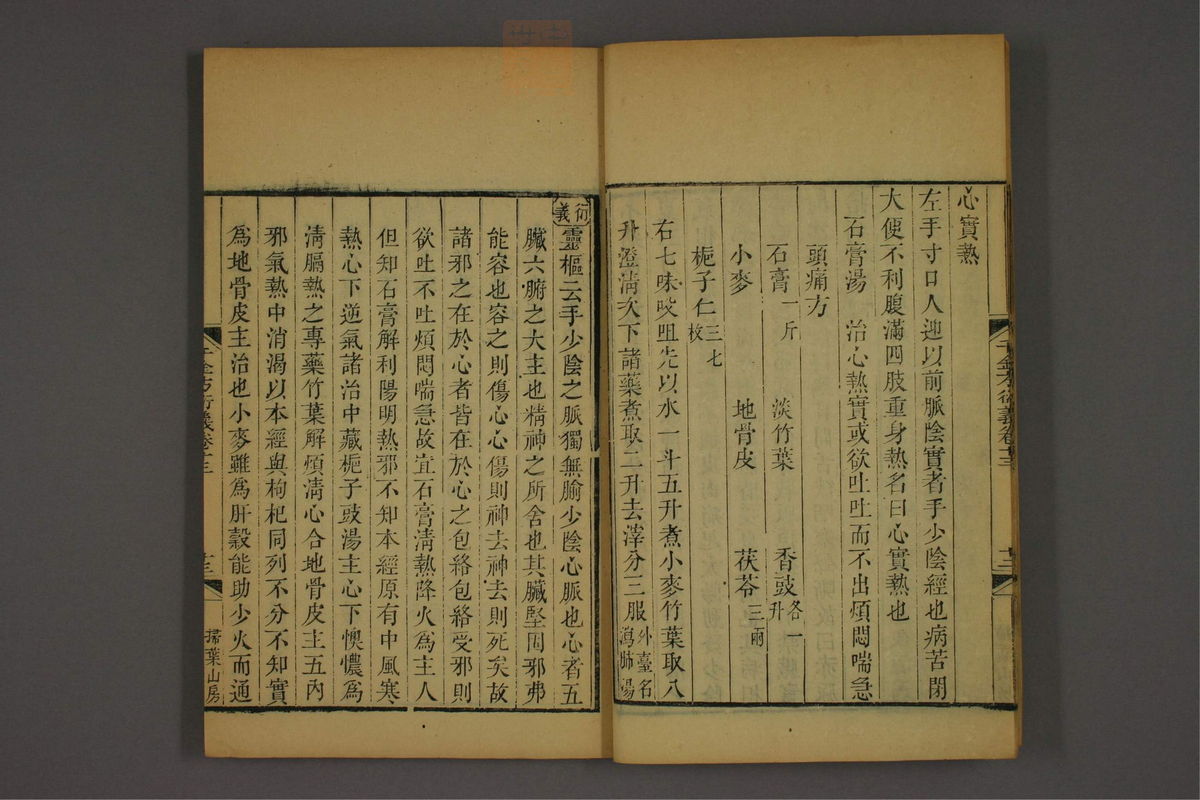 心實熱
左手寸口人迎以前脈陰實者手少陰經也病苦閉
大便不利腹滿四肢重身熱名曰心實熱也
石膏湯　治心熱實或欲吐吐而不出煩悶喘急
頭痛方
石膏一斤　淡竹葉　香豉各一升
小麥　地骨皮　茯苓三兩
梔子仁三七枚
右七味㕮咀先以水一斗五升煮小麥竹葉取八
升澄淸次下諸藥煮取二升去滓分三服外臺名瀉肺湯
千金方衍義卷十三
十二
衍義
靈樞云手少陰之脈獨無腧少陰心脈也心者五
臟六腑之大主也精神之所舍也其臟堅固邪弗
能容也容之則傷心心傷則神去神去則死矣故
諸邪之在於心者皆在於心之包絡包絡受邪則
欲吐不吐煩悶喘急故宜石膏淸熱降火爲主人
但知石膏解利陽明熱邪不知本經原有中風寒
熱心下逆氣諸治中藏梔子豉湯主心下懊憹爲
淸膈熱之專藥竹葉解煩淸心合地骨皮主五內
邪氣熱中消渴以本經與枸杞同列不分不知實
爲地骨皮主治也小麥雖爲肝穀能助少火而通
千金方衍義卷十三
十三
掃葉山房